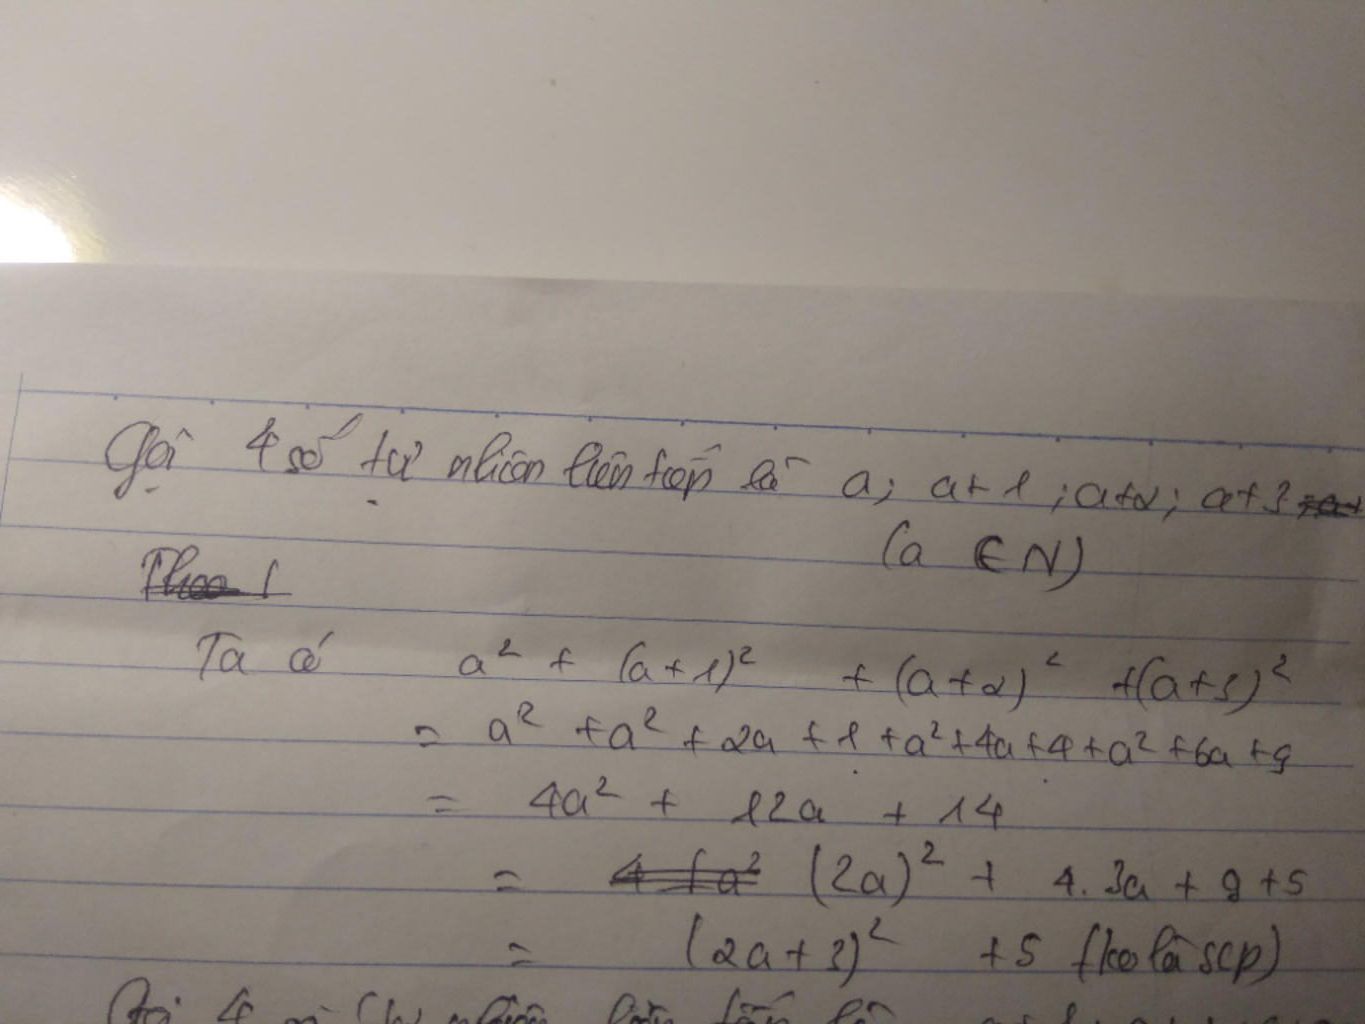 Gọi 4 số tự nhiên liên tiếp là a; a+1; a+2; a+3
(a ∈ N)
Ta có a² + (a+1)² + (a+2)² + (a+3)²
= a² + a² + 2a + 1 + a² + 4a + 4 + a² + 6a + 9
= 4a² + 12a + 14
= (2a)² + 4.3a + 9 + 5
= (2a+3)² + 5 (ko là scp)
Gọi 4 số tự nhiên liên tiếp là